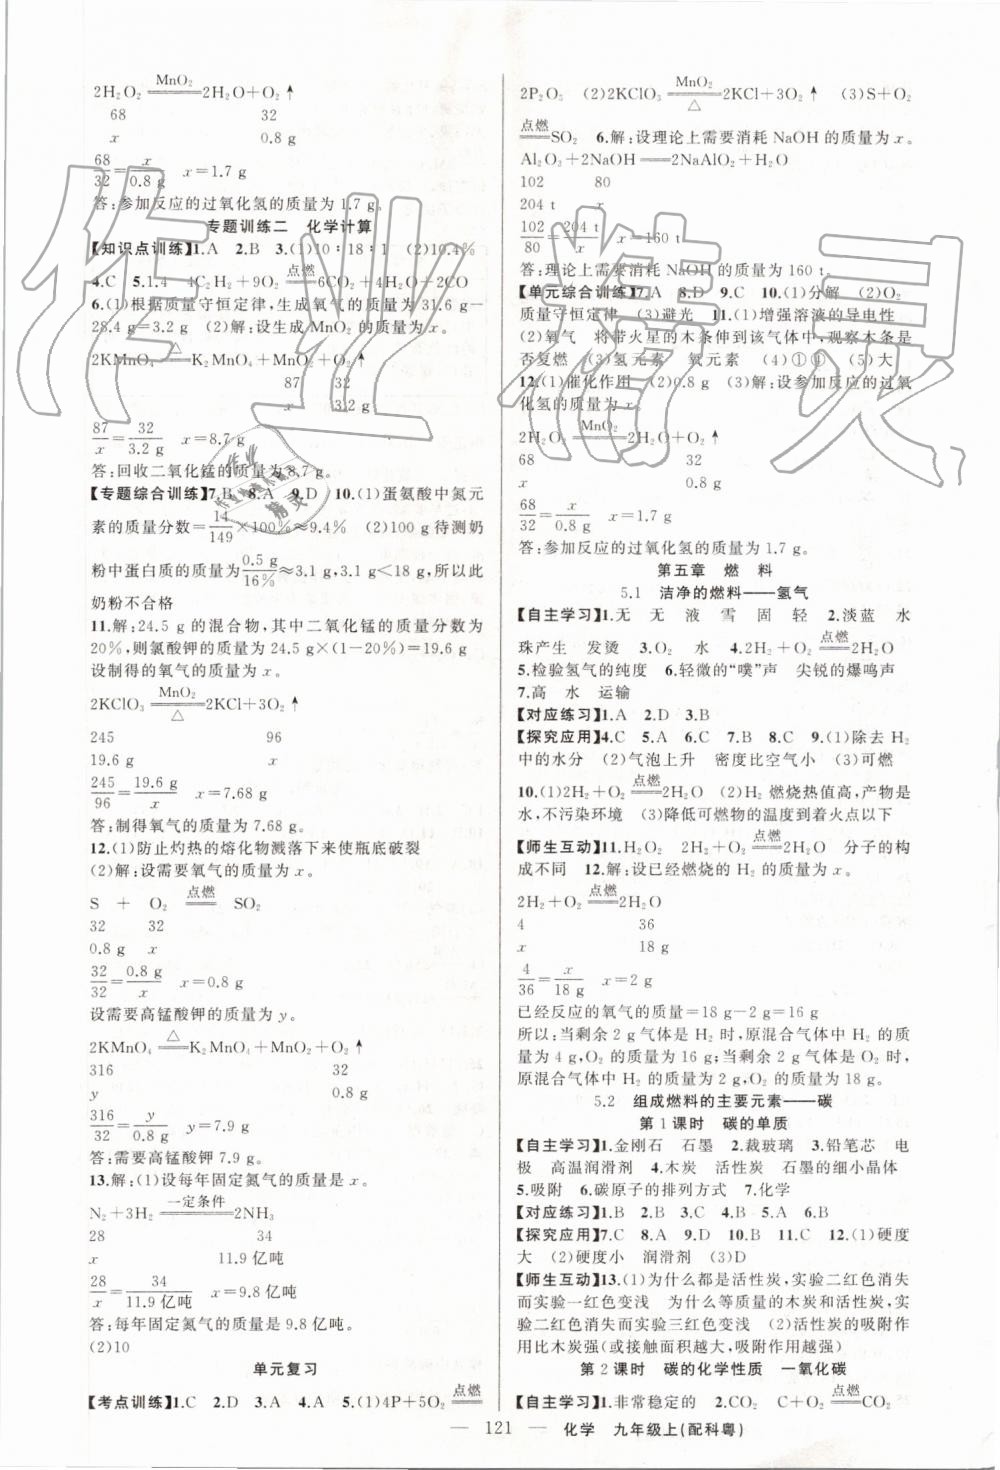 2H₂O₂ =MnO₂= 2H₂O+O₂↑
68 32
x 0.8 g
68/32=x/0.8 g x=1.7 g
答:参加反应的过氧化氢的质量为1.7 g。
专题训练二 化学计算
【知识点训练】1.A 2.B 3.(1)10∶18∶1 (2)10.4%
4.C 5.1.4 4C₂H₂+9O₂ =点燃= 6CO₂+4H₂O+2CO
6.(1)根据质量守恒定律,生成氧气的质量为31.6 g-
28.4 g=3.2 g (2)解:设生成MnO₂的质量为x。
2KMnO₄ =△= K₂MnO₄+MnO₂+O₂↑
87 32
x 3.2 g
87/x=32/3.2 g x=8.7 g
答:回收二氧化锰的质量为8.7 g。
【专题综合训练】7.B 8.A 9.D 10.(1)蛋氨酸中氮元
素的质量分数=14/149×100%≈9.4% (2)100 g待测奶
粉中蛋白质的质量为0.5 g/16%≈3.1 g,3.1 g<18 g,所以此
奶粉不合格
11.解:24.5 g的混合物,其中二氧化锰的质量分数为
20%,则氯酸钾的质量为24.5 g×(1-20%)=19.6 g
设制得的氧气的质量为x。
2KClO₃ =MnO₂/△= 2KCl+3O₂↑
245 96
19.6 g x
245/96=19.6 g/x x=7.68 g
答:制得氧气的质量为7.68 g。
12.(1)防止灼热的熔化物溅落下来使瓶底破裂
(2)解:设需要氧气的质量为x。
S + O₂ =点燃= SO₂
32 32
0.8 g x
32/32=0.8 g/x x=0.8 g
设需要高锰酸钾的质量为y。
2KMnO₄ =△= K₂MnO₄+MnO₂+O₂↑
316 32
y 0.8 g
316/32=y/0.8 g y=7.9 g
答:需要高锰酸钾7.9 g。
13.解:(1)设每年固定氮气的质量是x。
N₂+3H₂ =一定条件= 2NH₃
28 34
x 11.9亿吨
28/x=34/11.9亿吨 x=9.8亿吨
答:每年固定氮气的质量是9.8亿吨。
(2)10
单元复习
【考点训练】1.C 2.D 3.A 4.A 5.(1)4P+5O₂ =点燃=
2P₂O₅ (2)2KClO₃ =MnO₂/△= 2KCl+3O₂↑ (3)S+O₂
=点燃= SO₂ 6.解:设理论上需要消耗NaOH的质量为x。
Al₂O₃+2NaOH══2NaAlO₂+H₂O
102 80
204 t x
102/80=204 t/x x=160 t
答:理论上需要消耗NaOH的质量为160 t。
【单元综合训练】7.A 8.D 9.C 10.(1)分解 (2)O₂
质量守恒定律 (3)避光 11.(1)增强溶液的导电性
(2)氧气 将带火星的木条伸到该气体中,观察木条是
否复燃 (3)氢元素 氧元素 (4)①④ (5)大
12.(1)催化作用 (2)0.8 g (3)解:设参加反应的过氧
化氢的质量为x。
2H₂O₂ =MnO₂= 2H₂O+O₂↑
68 32
x 0.8 g
68/32=x/0.8 g x=1.7 g
答:参加反应的过氧化氢的质量为1.7 g。
第五章 燃 料
5.1 洁净的燃料——氢气
【自主学习】1.无 无 液 雪 固 轻 2.淡蓝 水
珠产生 发烫 3.O₂ 水 4.2H₂+O₂ =点燃= 2H₂O
5.检验氢气的纯度 6.轻微的“噗”声 尖锐的爆鸣声
7.高 水 运输
【对应练习】1.A 2.D 3.B
【探究应用】4.C 5.A 6.C 7.B 8.C 9.(1)除去H₂
中的水分 (2)气泡上升 密度比空气小 (3)可燃
10.(1)2H₂+O₂ =点燃= 2H₂O (2)H₂燃烧热值高,产物是
水,不污染环境 (3)降低可燃物的温度到着火点以下
【师生互动】11.H₂O₂ 2H₂+O₂ =点燃= 2H₂O 分子的构
成不同 12.解:设已经燃烧的H₂的质量为x。
2H₂+O₂ =点燃= 2H₂O
4 36
x 18 g
4/36=x/18 g x=2 g
已经反应的氧气的质量=18 g-2 g=16 g
所以:当剩余2 g气体是H₂时,原混合气体中H₂的质
量为4 g,O₂的质量为16 g;当剩余2 g气体是O₂时,
原混合气体中H₂的质量为2 g,O₂的质量为18 g。
5.2 组成燃料的主要元素——碳
第1课时 碳的单质
【自主学习】1.金刚石 石墨 2.裁玻璃 3.铅笔芯 电
极 高温润滑剂 4.木炭 活性炭 石墨的细小晶体
5.吸附 6.碳原子的排列方式 7.化学
【对应练习】1.B 2.B 3.C 4.B 5.A 6.B
【探究应用】7.C 8.A 9.D 10.B 11.C 12.(1)硬度
大 (2)硬度小 润滑剂 (3)D
【师生互动】13.(1)为什么都是活性炭,实验二红色消失
而实验一红色变浅 为什么等质量的木炭和活性炭,实
验二红色消失而实验三红色变浅 (2)活性炭的吸附作
用比木炭强(或接触面积越大,吸附作用越强)
第2课时 碳的化学性质 一氧化碳
【自主学习】1.非常稳定的 2.CO₂ C+O₂ =点燃= CO₂
— 121 — 化学 九年级上(配科粤)
作业精灵